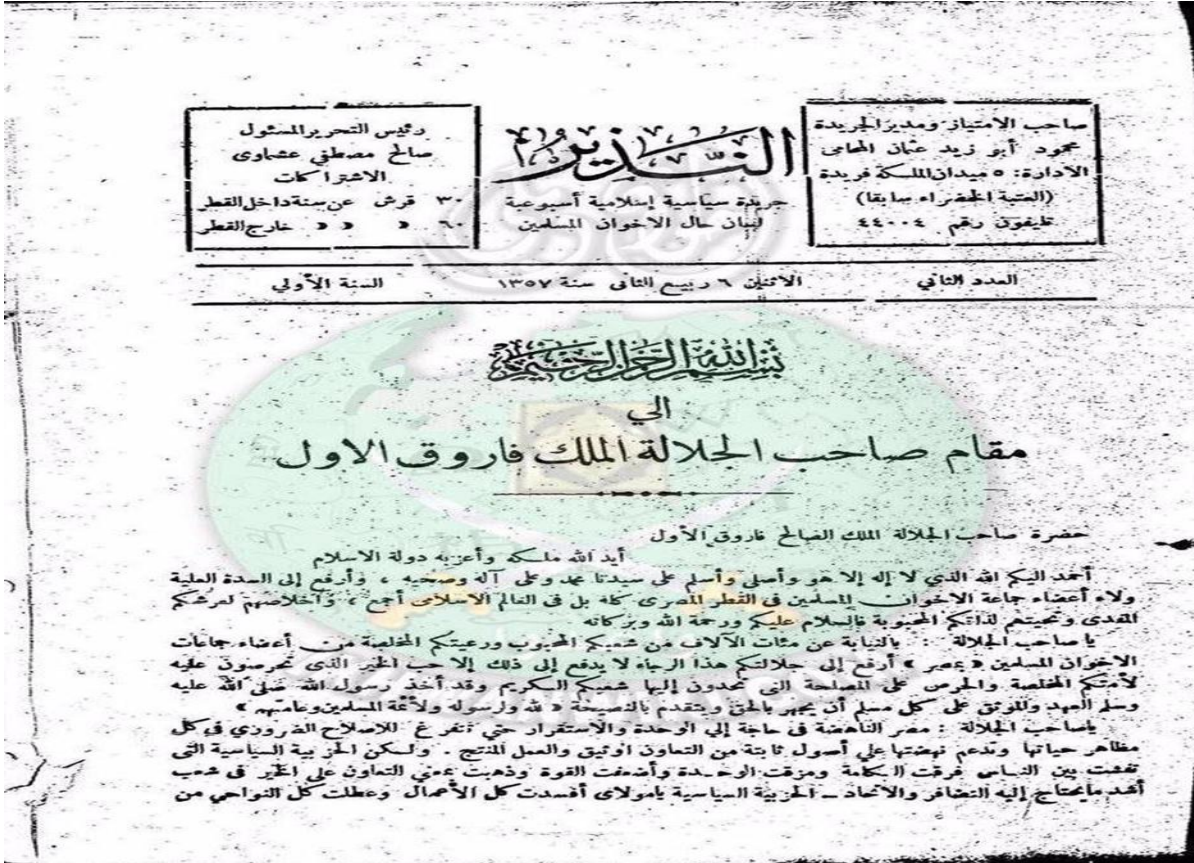 صاحب الامتياز ومدير الجريدة
محمود أبو زيد عثمان المحامي
الادارة: ٥ ميدان الملكة فريدة
(العتبة الخضراء سابقا)
تليفون رقم ٤٤٠٠٤
النذير
جريدة سياسية إسلامية أسبوعية
لسان حال الاخوان المسلمين
رئيس التحرير المسئول
صالح مصطفي عشماوى
الاشتراكات
٣٠ قرش عن سنة داخل القطر
٦٠ » » » خارج القطر
العدد الثاني
الاثنين ٦ ربيع الثانى سنة ١٣٥٧
السنة الأولي
بسم الله الرحمن الرحيم
الي
مقام صاحب الجلالة الملك فاروق الاول
حضرة صاحب الجلالة الملك الصالح فاروق الأول
أيد الله ملكه وأعز به دولة الاسلام
أحمد اليكم الله الذي لا إله إلا هو وأصلي وأسلم على سيدنا محمد وعلى آله وصحبه ، وأرفع إلى السدة العلية
ولاء أعضاء جماعة الاخوان المسلمين فى القطر المصرى كله بل فى العالم الاسلامى أجمع ، وإخلاصهم لعرشكم
المفدى وتحيتهم لذاتكم المحبوبة فالسلام عليكم ورحمة الله وبركاته
يا صاحب الجلالة : بالنيابة عن مئات الآلاف من شعبكم المحبوب ورعيتكم المخلصة من أعضاء جماعات
الاخوان المسلمين « بمصر » أرفع إلى جلالتكم هذا الرجاء لا يدفع إلى ذلك إلا حب الخير الذى تحرصون عليه
لأمتكم المخلصة والحرص على المصلحة التى تحدون إليها شعبكم الكريم وقد أخذ رسول الله صلى الله عليه
وسلم العهد والموثق على كل مسلم أن يجهر بالحق ويتقدم بالنصيحة « لله ولرسوله ولأئمة المسلمين وعامتهم »
ياصاحب الجلالة : مصر الناهضة فى حاجة إلى الوحدة والاستقرار حتى تتفرغ للاصلاح الضرورى فى كل
مظاهر حياتها وتدعم نهضتها علي أصول ثابتة من التعاون الوثيق والعمل المنتج . ولكن الحزبية السياسية التى
تفشت بين الناس فرقت الكلمة ومزقت الوحدة وأضعفت القوة وذهبت بمعني التعاون على الخير فى شعب
أشد مايحتاج إليه التضافر والاتحاد ـ الحزبية السياسية يامولاى أفسدت كل الأعمال وعطلت كل النواحي من